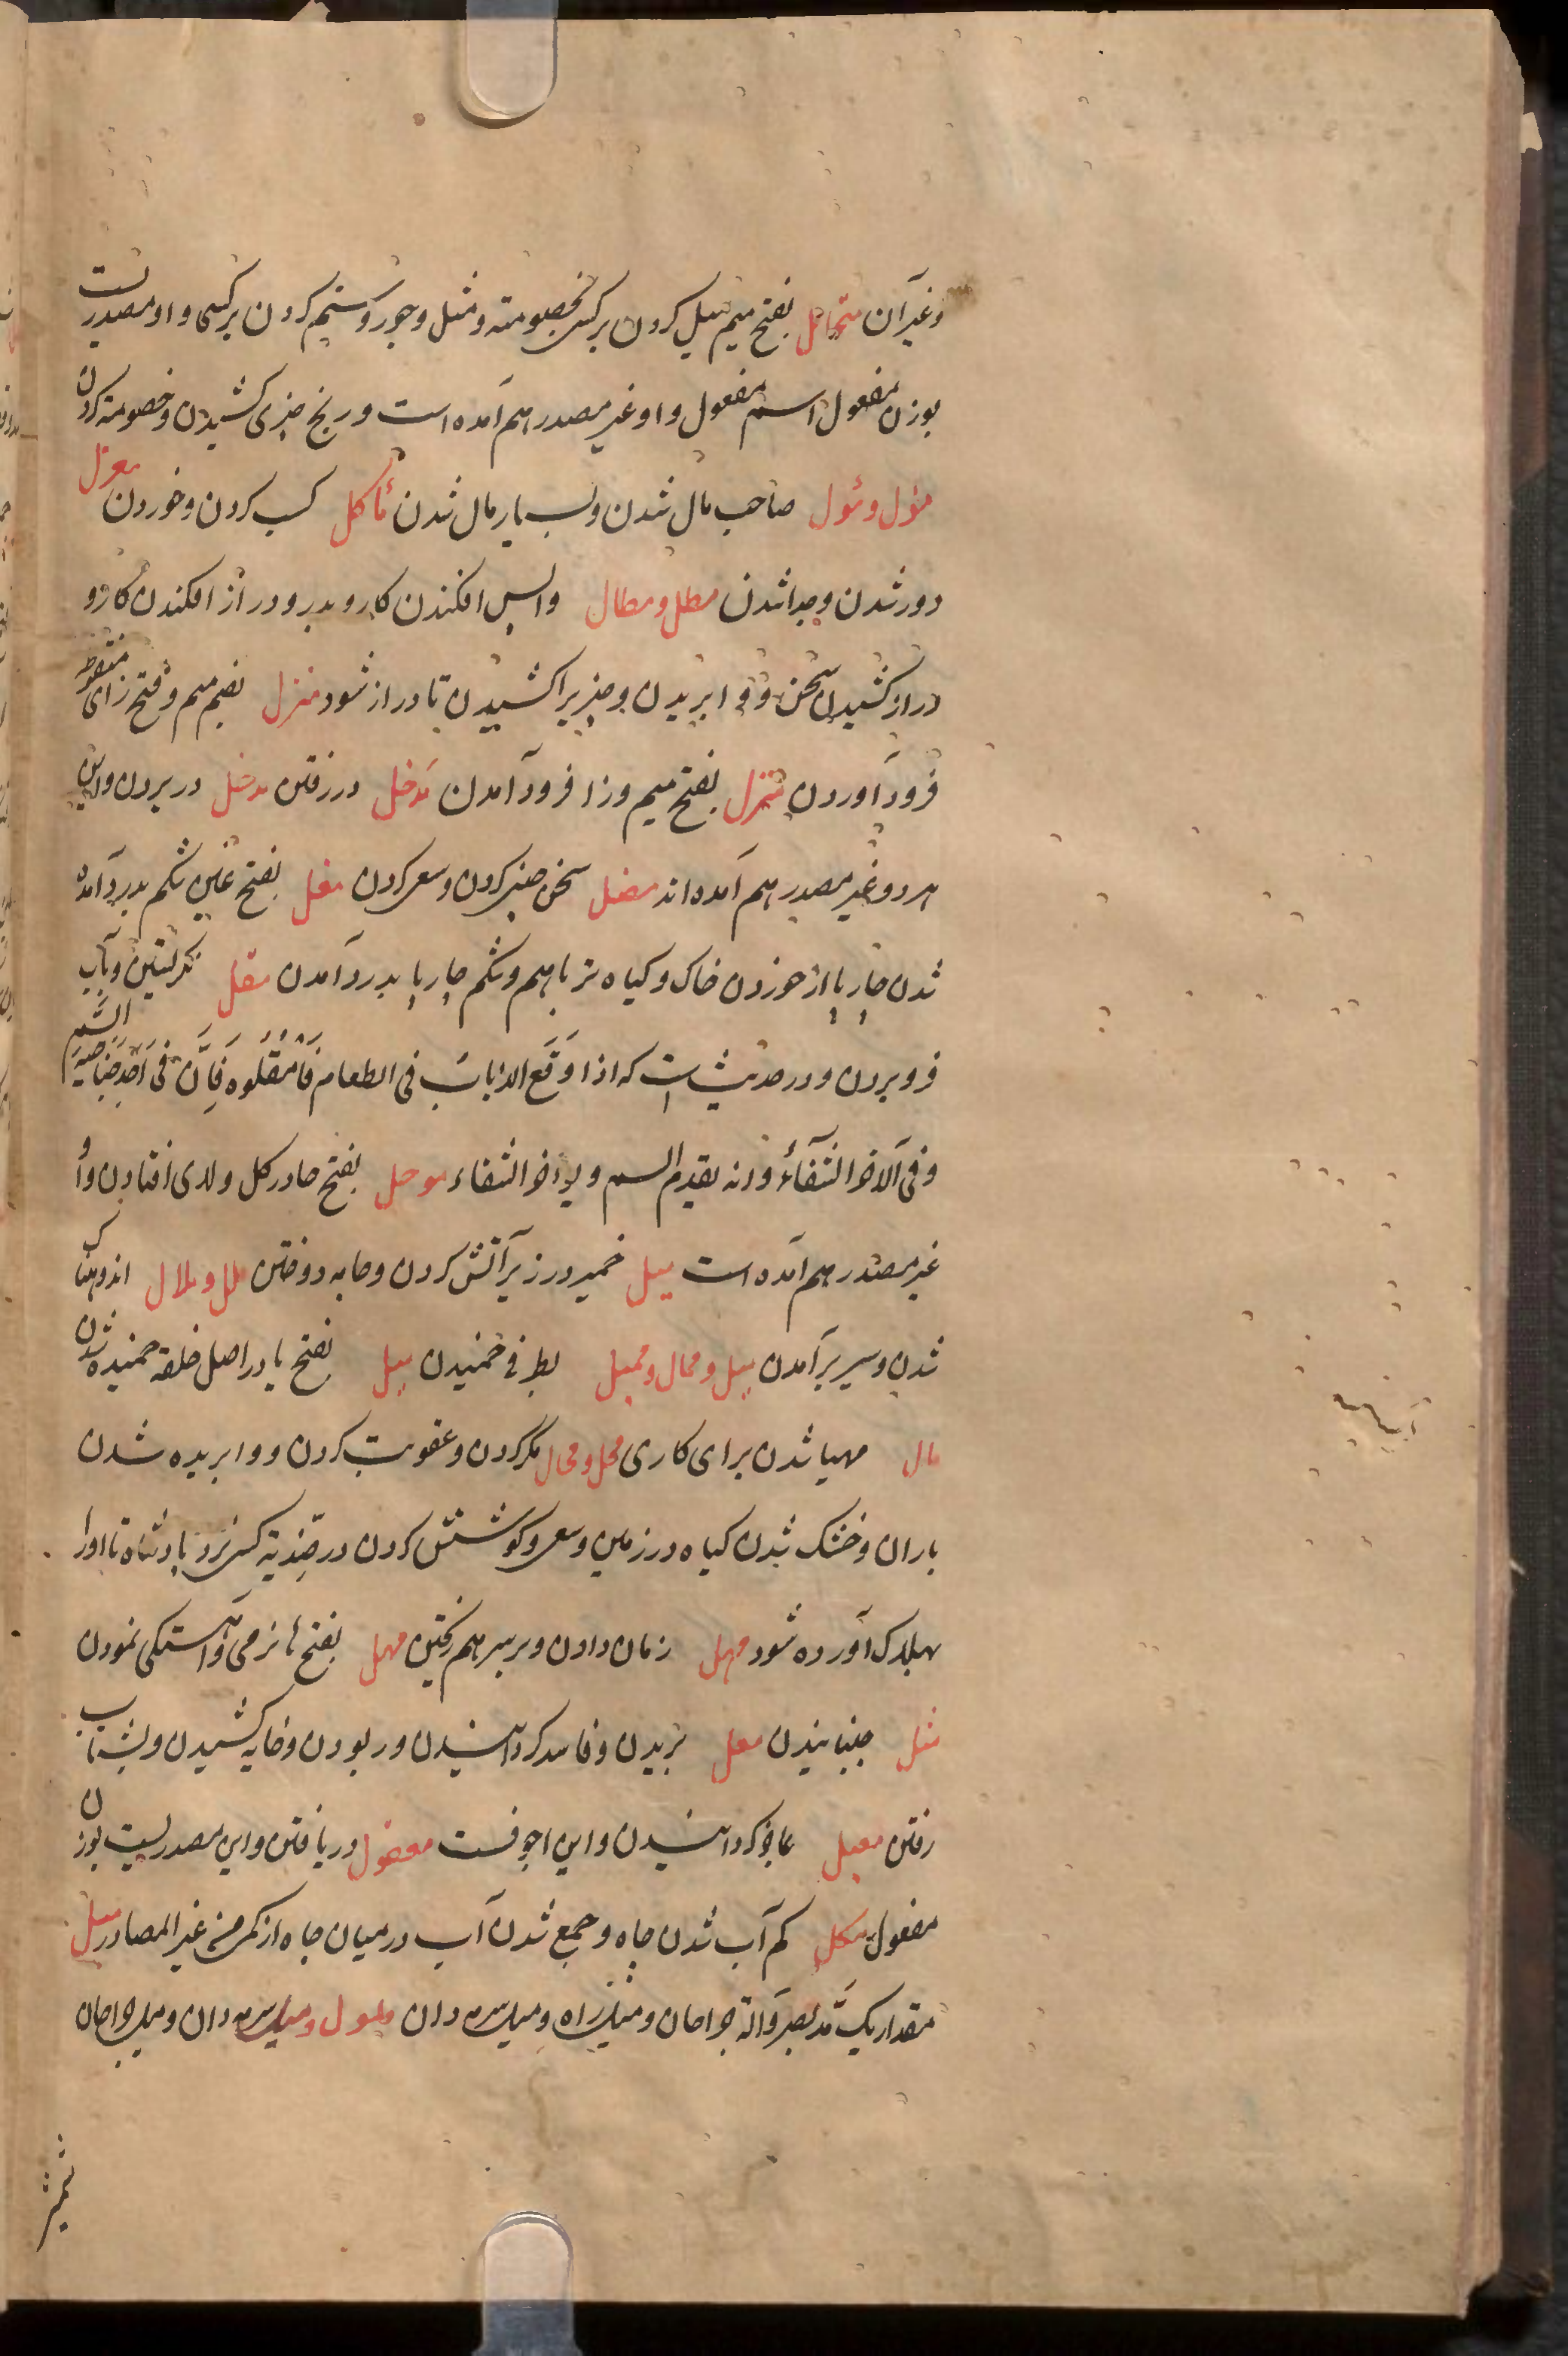 وغیرآن متحامل بفتح میم میل کردن برکسی بخصومته و مثل و جور و ستم کردن برکسی و او مصدریست
بوزن مفعول اسم مفعول و او غیر مصدر هم آمده است و رنج چیزی کشیدن و خصومته کردن
مؤل و مئول صاحب مال شدن و بسیار مال شدن مأکل کسب کردن و خوردن معزل
دور شدن و جدا شدن مطل و مطال واپس افکندن کار و بدر و دراز افکندن کار و
دراز کشیدن سخن و وابریدن و چیزیرا کشیدن تا دراز شود منزل بضم میم و فتح زای منقوطه
فرود آوردن منزل بفتح میم و زا فرود آمدن مَدخل در رفتن مدخل در بردن و این
هر دو غیر مصدر هم آمده اند مضل سخن چینی کردن و سعی کردن مغل بفتح غین شکم بدرد آمده
شدن چارپا از خوردن خاک و گیاه تر باهم و شکم چارپا بدرد آمدن مقل نگریستن و بآب
فرو بردن و در حدیثست که اذا وَقَع الذبابُ فی الطعام فَامْقُلُوه فَاِنَّ فی اَحَدِ جَناحَیهِ السَّم
و فی الآخر الشفآءُ و انه یقدم السم و یؤخر الشفاء موحل بفتح حا در گل و لای افتادن و او
غیر مصدر هم آمده است میل خمیر در زیر آتش کردن و جامه دوختن ملل و ملال اندوهناک
شدن و سیر برآمدن میل و ممال و ممیل بطرفی خمیدن میل بفتح یا در اصل خلقه خمیده شدن
مال مهیا شدن برای کاری محل و محال مکر کردن و عقوبت کردن و وابریده شدن
باران و خشک شدن گیاه در زمین و سعی و کوشش کردن در ضدیه کسی نزد پادشاه تا او را
بهلاک آورده شود مهل زمان دادن و بر سر هم ریختن مهل بفتح ها نرمی و آهستگی نمودن
مثل جنبانیدن معل بریدن و فاسد گردانیدن و ربودن و خایه کشیدن و بشتاب
رفتن معیل عاجز گردانیدن و این اجوفست معقول دریافتن و این مصدریست بوزن
مفعول مکل کم آب شدن چاه و جمع شدن آب در میان چاه از کمی من غیر المصادر میل
مقدار یک مَدّ بصر و آلة جراحان و میل راه و میل سرمه دان ملمول و میل سرمه دان و میل جراحان